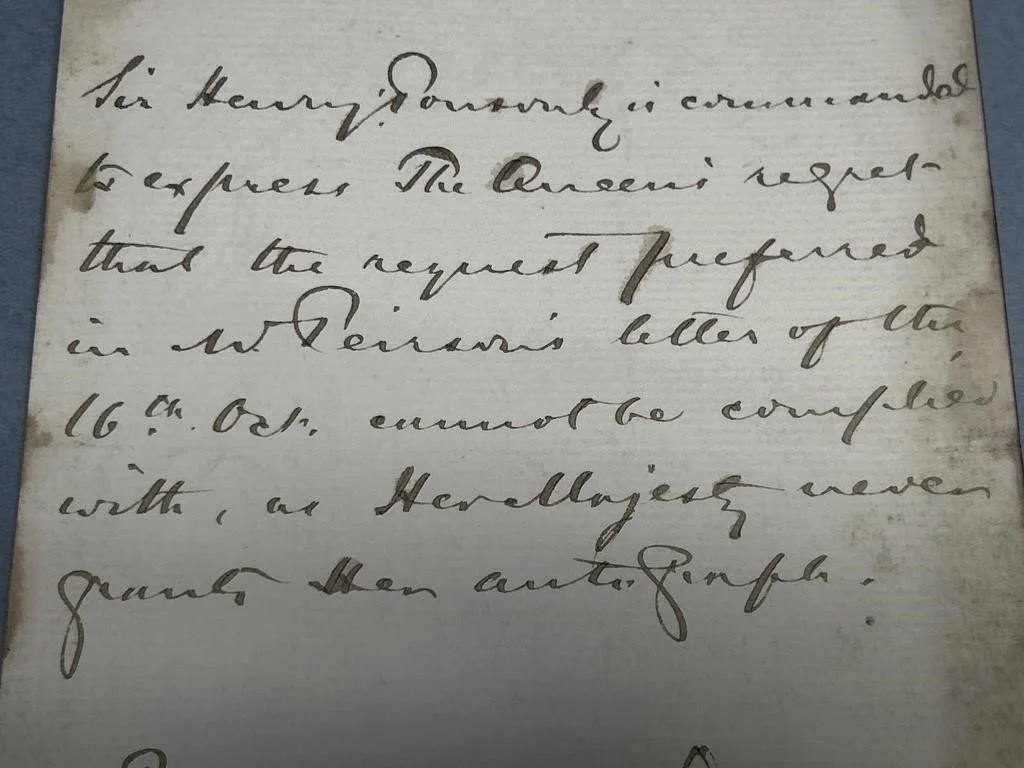 Sir Henry Ponsonby is commanded
to express The Queen's regret
that the request preferred
in Mr. Peirson's letter of the
16th. Oct. cannot be complied
with, as Her Majesty never
grants Her autograph.